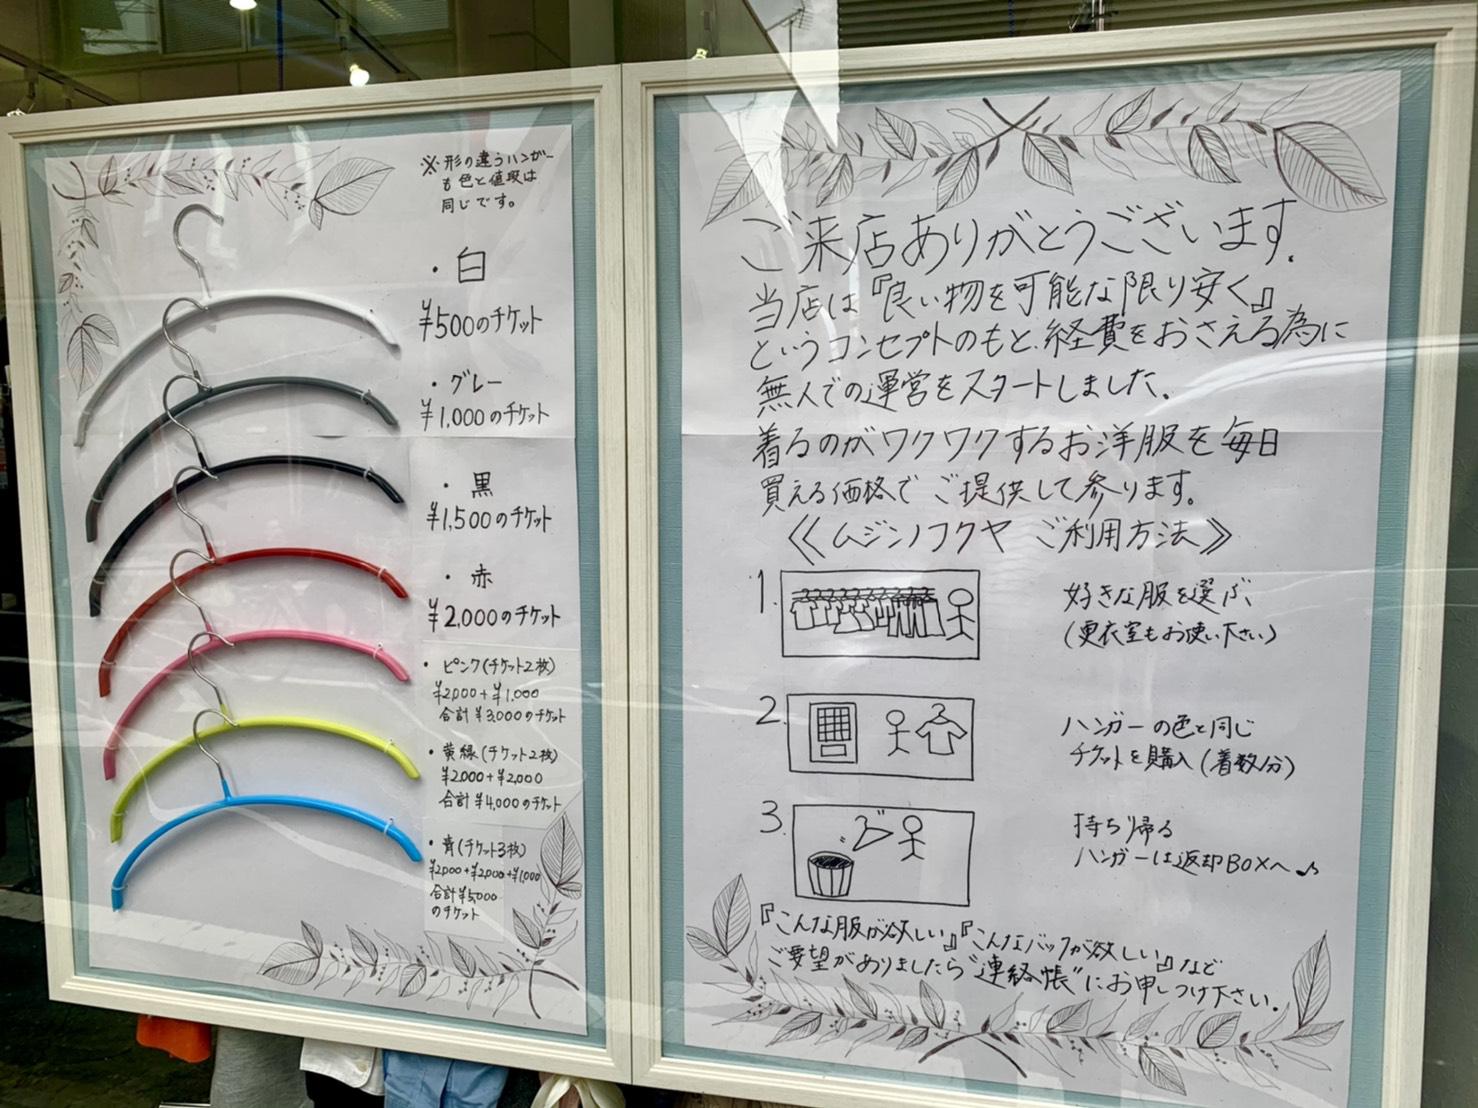 ※形の違うハンガー
も色と値段は
同じです。
・白
¥500のチケット
・グレー
¥1,000のチケット
・黒
¥1,500のチケット
・赤
¥2,000のチケット
・ピンク(チケット2枚)
¥2,000+¥1,000
合計¥3,000のチケット
・黄緑(チケット2枚)
¥2,000+¥2,000
合計¥4,000のチケット
・青(チケット3枚)
¥2,000+¥2,000+¥1,000
合計¥5,000
のチケット
ご来店ありがとうございます.
当店は『良い物を可能な限り安く』
というコンセプトのもと、経費をおさえる為に
無人での運営をスタートしました.
着るのがワクワクするお洋服を毎日
買える価格でご提供して参ります。
《ムジンノフクヤ ご利用方法》
1.
好きな服を選ぶ、
(更衣室もお使い下さい)
2.
ハンガーの色と同じ
チケットを購入(着数分)
3.
持ち帰る
ハンガーは返却BOXへ♪
『こんな服が欲しい』『こんなバックが欲しい』など
ご要望がありましたら"連絡帳"にお申しつけ下さい.